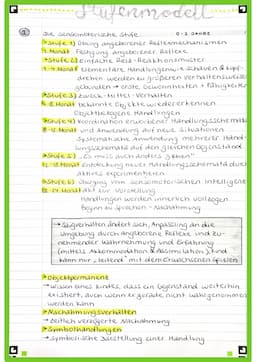 Stufenmodell
① Die sensomotorische Stufe 0-2 Jahre
→Stufe 1) Übung angeborener Reflexmechanismen
1. Monat Festigung angeborener Reflex.
→Stufe 2) einfache Reiz-Reaktionsmuster
1-4 Monat Elementare Handlungen z.B.
drehen werden zu größeren Verhaltensweise
gebunden → erste Gewohnheiten + Fähigkeiten
→Stufe 3) Zweck-Mittel-Verhalten
4-8 Monat bekannte Objekte wiedererkennen
Objektbezogene Handlungen
→Stufe 4) Koordination erworbener Handlungsschemata
8-12 Monat und Anwendung auf neue Situationen
Systematische Anwendung mehrerer Handl-
ungsschemata auf den gleichen Gegenstand
→Stufe 5) „Es muss auch anders gehen"
Entdeckung neuer Handlungsschemata durch
aktives experimentieren
→Stufe 6) Übergang vom sensomotorischen Intelligenz-
akt zur Vorstellung
Handlungen werden innerlich vollzogen
Beginn zu Sprechen - Nachahmung
→ Saugverhalten ändert sich, Anpassung an die
Umgebung durch angeborene Reflexe und zu-
nehmender Wahrnehmung und Erfahrung
(mittels Akkommodation & Assimilation) und
kann nur mit dem Erwachsenen spielen
→Objektpermanent
→ Wissen eines Kindes, dass ein Gegenstand weiterhin
existiert, auch wenn er gerade nicht wahrgenommen
werden kann
→Nachahmungsverhalten
→ zeitlich verzögerte Nachahmung
→Symbolhandlungen
→ symbolische Darstellung einer Handlung